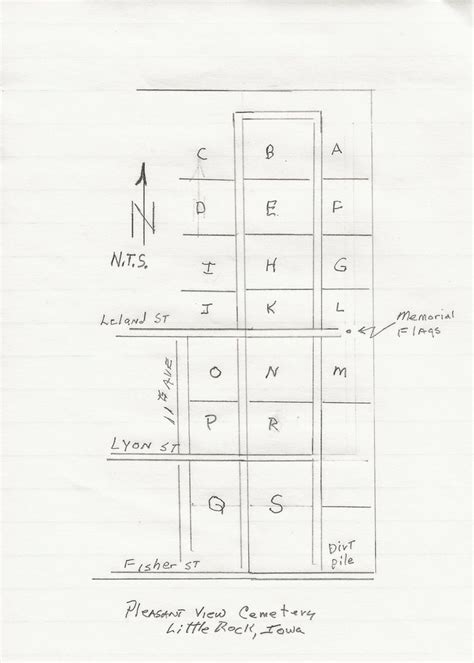 C B A
D E F
N
N.T.S.
I H G
J K L
Leland ST
Memorial
Flags
11th AVE
O N M
P R
LYON ST
Q S
Dirt
pile
Fisher ST
Pleasant View Cemetery
Little Rock, Iowa